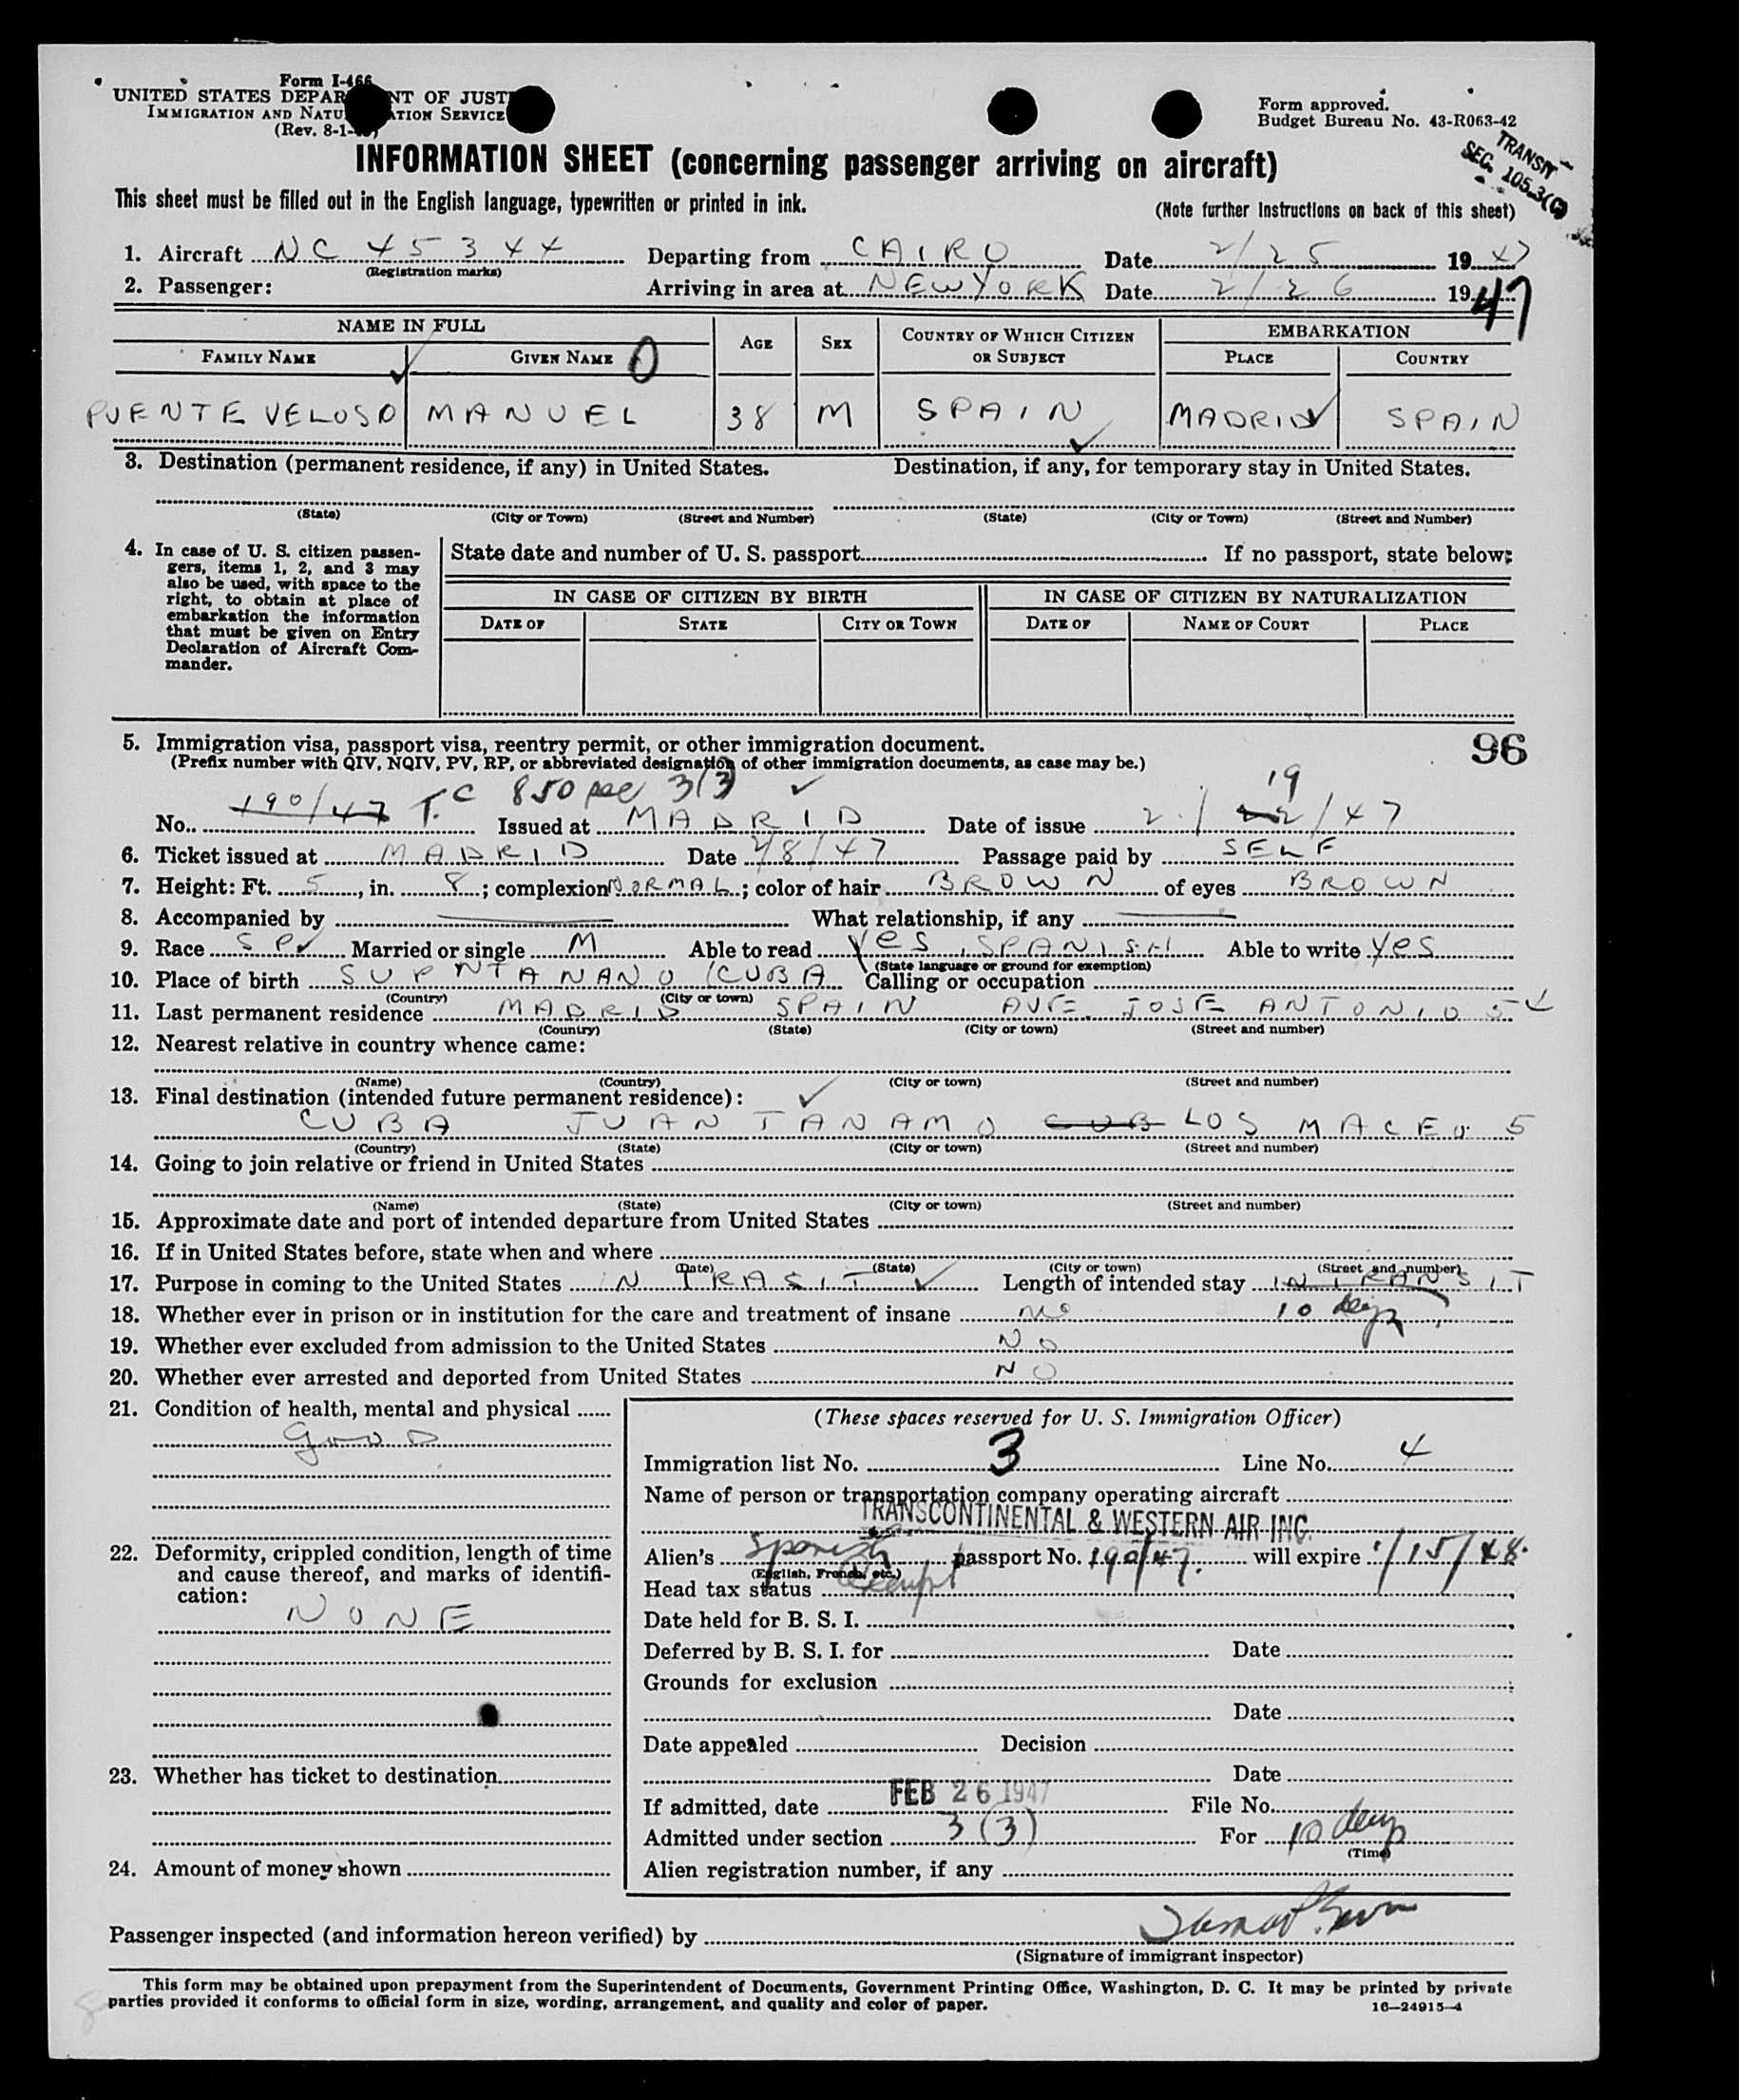 Form I-466
UNITED STATES DEPARTMENT OF JUSTICE
IMMIGRATION AND NATURALIZATION SERVICE
(Rev. 8-1-
Form approved.
Budget Bureau No. 43-R063-42
TRANSIT
SEC. 105.3(C)
INFORMATION SHEET (concerning passenger arriving on aircraft)
This sheet must be filled out in the English language, typewritten or printed in ink.
(Note further instructions on back of this sheet)
1. Aircraft NC 45344 Departing from CAIRO Date 2/25 1947
(Registration marks)
2. Passenger: Arriving in area at NEW YORK Date 2/26 1947
NAME IN FULL AGE SEX COUNTRY OF WHICH CITIZEN OR SUBJECT EMBARKATION
FAMILY NAME GIVEN NAME 0 PLACE COUNTRY
PUENTE VELOSO MANUEL 38 M SPAIN MADRID SPAIN
3. Destination (permanent residence, if any) in United States. Destination, if any, for temporary stay in United States.
(State) (City or Town) (Street and Number) (State) (City or Town) (Street and Number)
4. In case of U. S. citizen passen-
gers, items 1, 2, and 3 may
also be used, with space to the
right, to obtain at place of
embarkation the information
that must be given on Entry
Declaration of Aircraft Com-
mander.
State date and number of U. S. passport If no passport, state below:
IN CASE OF CITIZEN BY BIRTH IN CASE OF CITIZEN BY NATURALIZATION
DATE OF STATE CITY OR TOWN DATE OF NAME OF COURT PLACE
5. Immigration visa, passport visa, reentry permit, or other immigration document.
96
(Prefix number with QIV, NQIV, PV, RP, or abbreviated designation of other immigration documents, as case may be.)
No. 190/47 T.C 850 sec 3(3) Issued at MADRID Date of issue 2/19/47
6. Ticket issued at MADRID Date 2/8/47 Passage paid by SELF
7. Height: Ft. 5, in. 8; complexion NORMAL; color of hair BROWN of eyes BROWN
8. Accompanied by What relationship, if any
9. Race SP Married or single M Able to read Yes, SPANISH Able to write Yes
(State language or ground for exemption)
10. Place of birth CUBA Calling or occupation
(Country) (City or town)
11. Last permanent residence MADRID SPAIN AVE. JOSE ANTONIO 54
(Country) (State) (City or town) (Street and number)
12. Nearest relative in country whence came:
(Name) (Country) (City or town) (Street and number)
13. Final destination (intended future permanent residence):
CUBA JUANTANAMO CUB LOS MACEO 5
(Country) (State) (City or town) (Street and number)
14. Going to join relative or friend in United States
(Name) (State) (City or town) (Street and number)
15. Approximate date and port of intended departure from United States
16. If in United States before, state when and where
(Date) (State) (City or town) (Street and number)
17. Purpose in coming to the United States IN TRASIT Length of intended stay IN TRANSIT
18. Whether ever in prison or in institution for the care and treatment of insane no 10 days
19. Whether ever excluded from admission to the United States NO
20. Whether ever arrested and deported from United States NO
21. Condition of health, mental and physical
GOOD
22. Deformity, crippled condition, length of time
and cause thereof, and marks of identifi-
cation:
NONE
23. Whether has ticket to destination
24. Amount of money shown
(These spaces reserved for U. S. Immigration Officer)
Immigration list No. 3 Line No. 4
Name of person or transportation company operating aircraft
TRANSCONTINENTAL & WESTERN AIR INC.
Alien's Spanish passport No. 190/47. will expire 1/15/48.
(English, French, etc.)
Head tax status Exempt
Date held for B. S. I.
Deferred by B. S. I. for Date
Grounds for exclusion
Date
Date appealed Decision
Date
If admitted, date FEB 26 1947 File No.
Admitted under section 3(3) For 10 days
(Time)
Alien registration number, if any
Passenger inspected (and information hereon verified) by
(Signature of immigrant inspector)
This form may be obtained upon prepayment from the Superintendent of Documents, Government Printing Office, Washington, D. C. It may be printed by private
parties provided it conforms to official form in size, wording, arrangement, and quality and color of paper. 16—24915-4